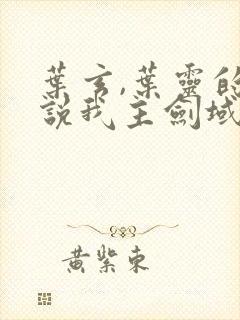 葉玄,葉靈的
說我主劍域
黃紫東